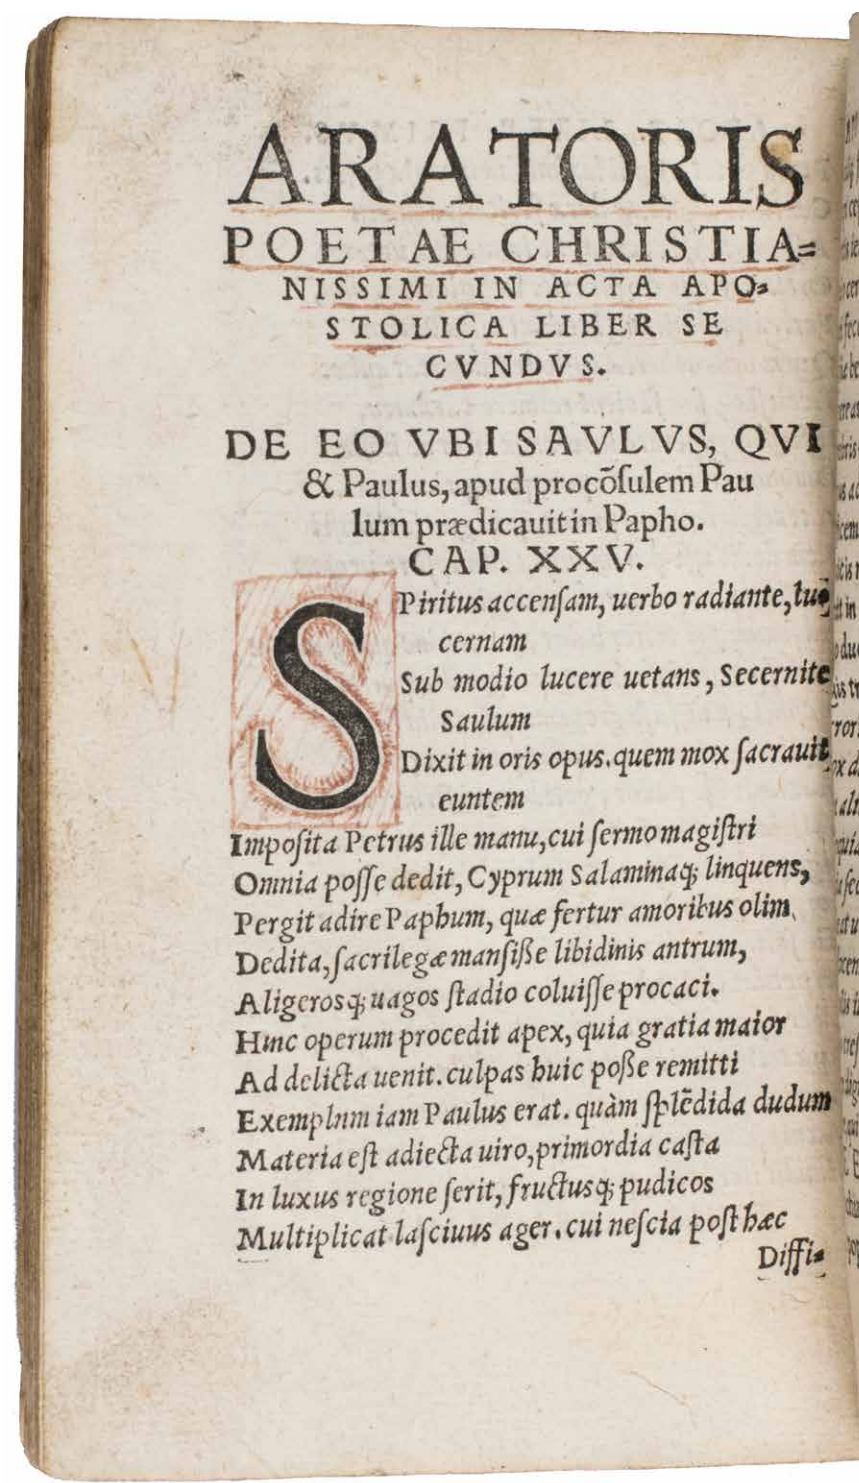 ARATORIS
POETAE CHRISTIA=
NISSIMI IN ACTA APO=
STOLICA LIBER SE
CVNDVS.
DE EO VBI SAVLVS, QVI
& Paulus, apud procõſulem Pau
lum prædicauit in Papho.
CAP. XXV.
SPiritus accenſam, uerbo radiante, luc
cernam
Sub modio lucere uetans, Secernite
Saulum
Dixit in oris opus. quem mox ſacrauit
euntem
Impoſita Petrus ille manu, cui ſermo magiſtri
Omnia poſſe dedit, Cyprum Salaminaq; linquens,
Pergit adire Paphum, quæ fertur amoribus olim
Dedita, ſacrilegæ manſiſſe libidinis antrum,
Aligerosq; uagos ſtadio coluiſſe procaci.
Hinc operum procedit apex, quia gratia maior
Ad delicta uenit. culpas huic poſſe remitti
Exemplum iam Paulus erat. quàm ſplẽdida dudum
Materia eſt adiecta uiro, primordia caſta
In luxus regione ſerit, fructusq; pudicos
Multiplicat laſciuus ager. cui neſcia poſt hæc
Diffi=